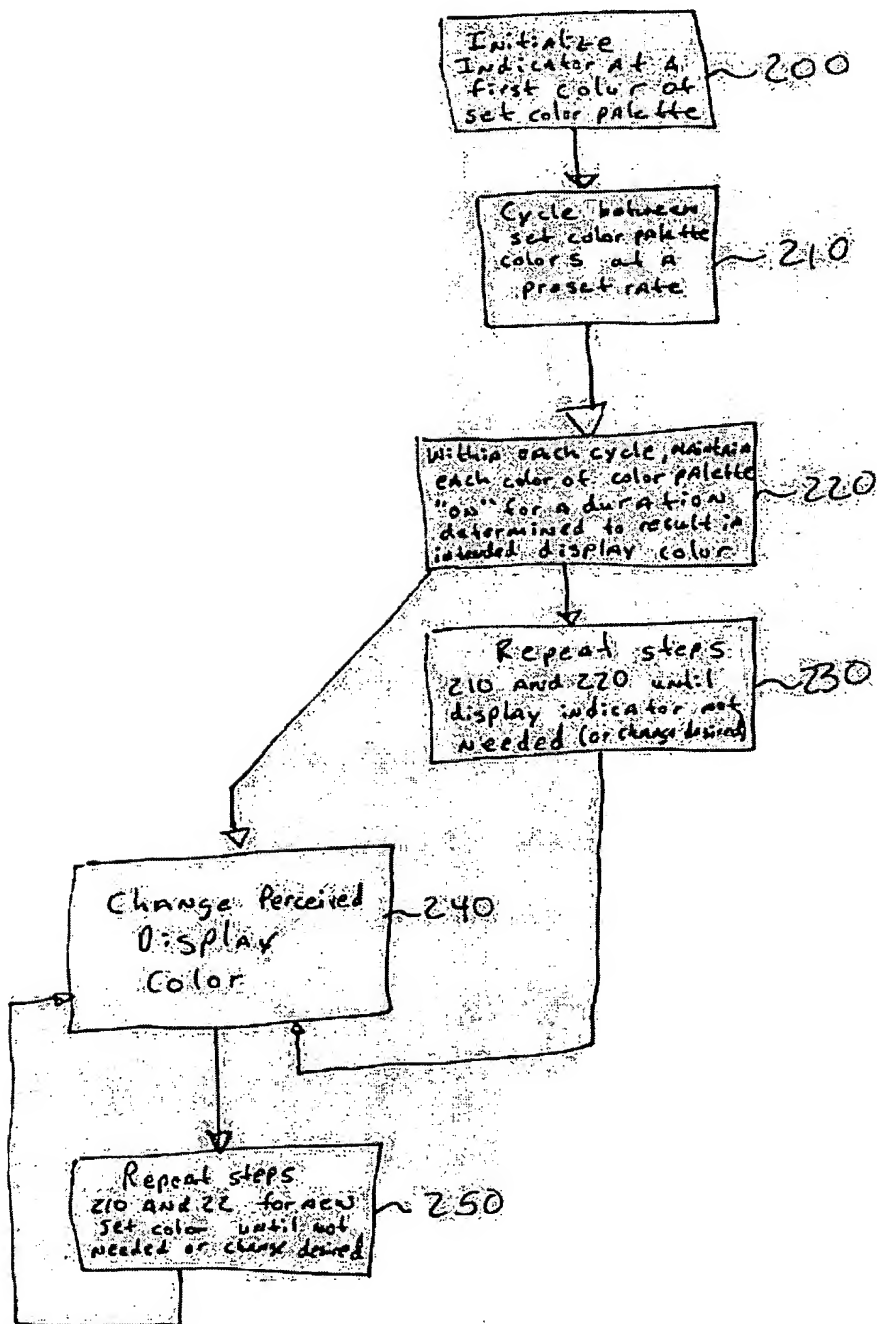 Initialize
Indicator at a
first color of
set color palette
200
Cycle between
set color palette
colors at a
preset rate
210
Within each cycle, maintain
each color of color palette
"on" for a duration
determined to result in
intended display color
220
Repeat steps
210 and 220 until
display indicator not
needed (or change desired)
230
Change Perceived
Display
Color
240
Repeat steps
210 and 22 for new
set color until not
needed or change desired
250